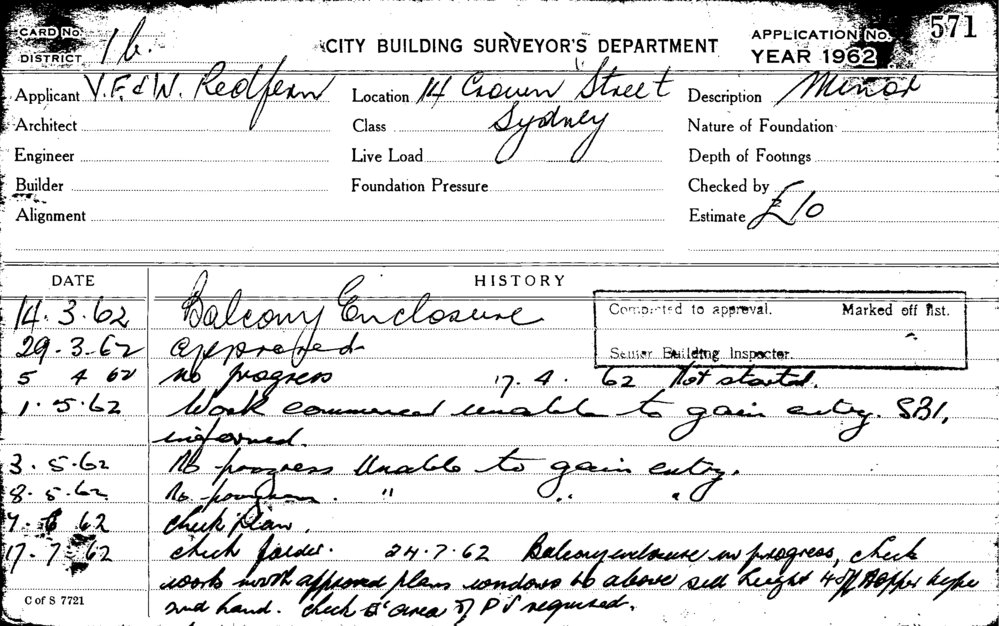 CARD No.
DISTRICT 1b.
CITY BUILDING SURVEYOR'S DEPARTMENT
APPLICATION No. 571
YEAR 1962
Applicant V. F. & W. Redfern
Location 14 Crown Street
Description Minor
Architect
Class Sydney
Nature of Foundation
Engineer
Live Load
Depth of Footings
Builder
Foundation Pressure
Checked by
Alignment
Estimate £10
DATE
HISTORY
14.3.62 Balcony Enclosure
Completed to approval. Marked off list.
Senior Building Inspector.
29.3.62 approved
5 4 62 no progress 17.4.62 Not started.
1.5.62 Work commenced unable to gain entry. SBI,
informed.
3.5.62 No progress Unable to gain entry.
8.5.62 No progress. " " "
62 check plan.
17.7.62 check 24.7.62 Balcony enclosure in progress, check
work with approved plans windows to above sill height hopper type
2nd hand. check area of required.
C of S 7721